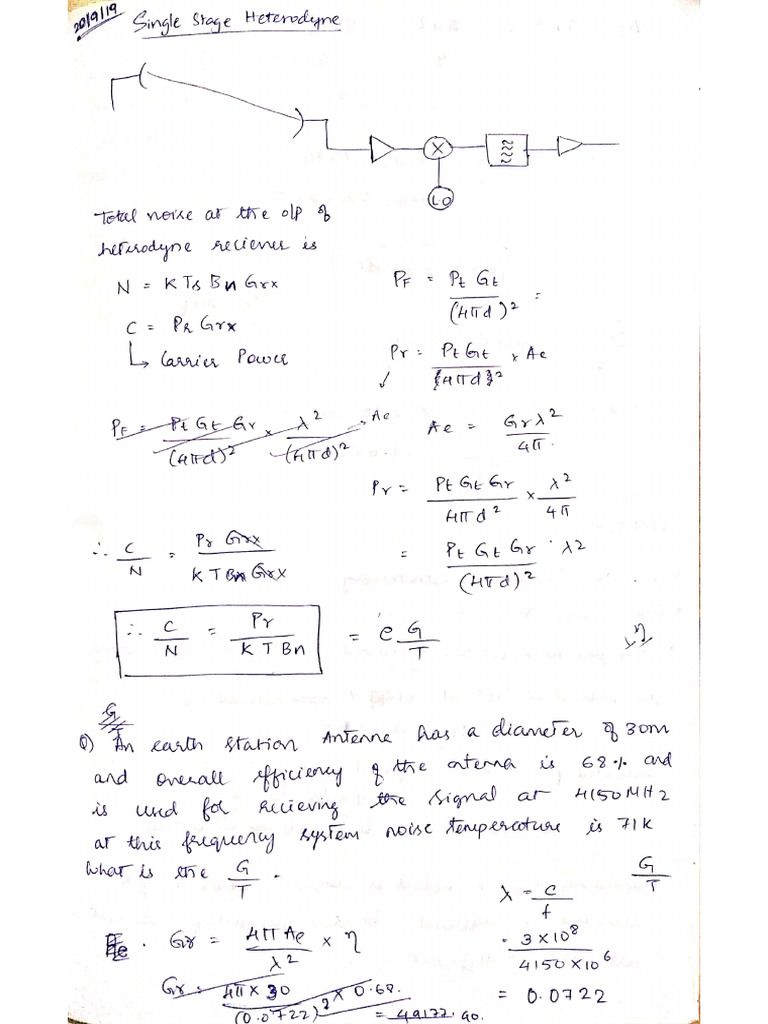 20/9/19
Single Stage Heterodyne
X
LO
Total noise at the o/p of
heterodyne reciener is
N = K Ts Bn Grx
C = PR Grx
↳ Carrier Power
PF = Pt Gt / (4πd)² =
Pr = Pt Gt / (4πd)² × Ae
PF = Pt Gt Gr / (4πd)² × λ² / (4πd)² → Ae
Ae = Gr λ² / 4π
Pr = Pt Gt Gr / 4πd² × λ² / 4π
= Pt Gt Gr · λ² / (4πd)²
∴ C/N = Pr Grx / K T Bn Grx
∴ C/N = Pr / K T Bn = e G/T
G/T
Q) An earth station Antenna has a diameter of 30m
and overall efficiency of the antenna is 68% and
is used for recieving the signal at 4150 MHz
at this frequency system noise temperature is 71k
What is the G/T.
G/T
λ = c/f
= 3×10⁸ / 4150×10⁶
= 0.0722
Gr = 4π Ae / λ² × η
Gr = 4π × 30 / (0.0722)² × 0.68
= 49177.90.